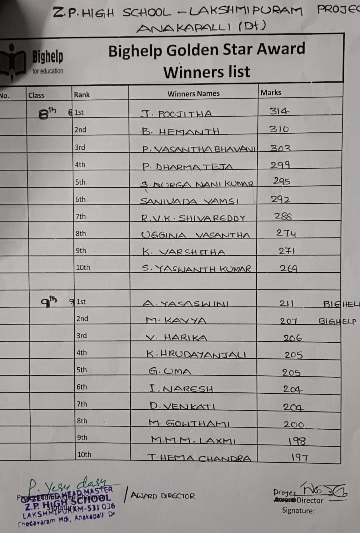 Z.P. HIGH SCHOOL - LAKSHMIPURAM PROJE
ANAKAPALLI (Dt)
Bighelp
for education
Bighelp Golden Star Award
Winners list
No. Class Rank Winners Names Marks
8th 1st J. POOJITHA 314
2nd B. HEMANTH 310
3rd P. VASANTHA BHAVANI 302
4th P. DHARMA TEJA 299
5th S. DURGA NANI KUMAR 295
6th SANIVADA VAMSI 292
7th R.V.K. SHIVAREDDY 288
8th UGGINA VASANTHA 274
9th K. VARSHITHA 271
10th S. YASWANTH KUMAR 269
9th 1st A. YASASWINI 211 BIGHEL
2nd M. KAVYA 207 BIGHELP
3rd V. HARIKA 206
4th K. HRUDAYANJALI 205
5th G. UMA 205
6th I. NARESH 204
7th D. VENKATI 202
8th M. GOWTHAMI 200
9th M.M.M. LAXMI 198
10th T. HEMA CHANDRA 197
GAZETTED HEAD MASTER
Z.P. HIGH SCHOOL
LAKSHMIPURAM-531 036
Cheedavaram Md, Anakapalli Dt
/ AWARD DIRECTOR
Project Director
Signature: